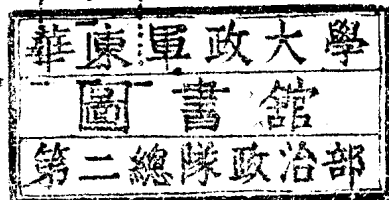 華東軍政大學
圖書館
第二總隊政治部